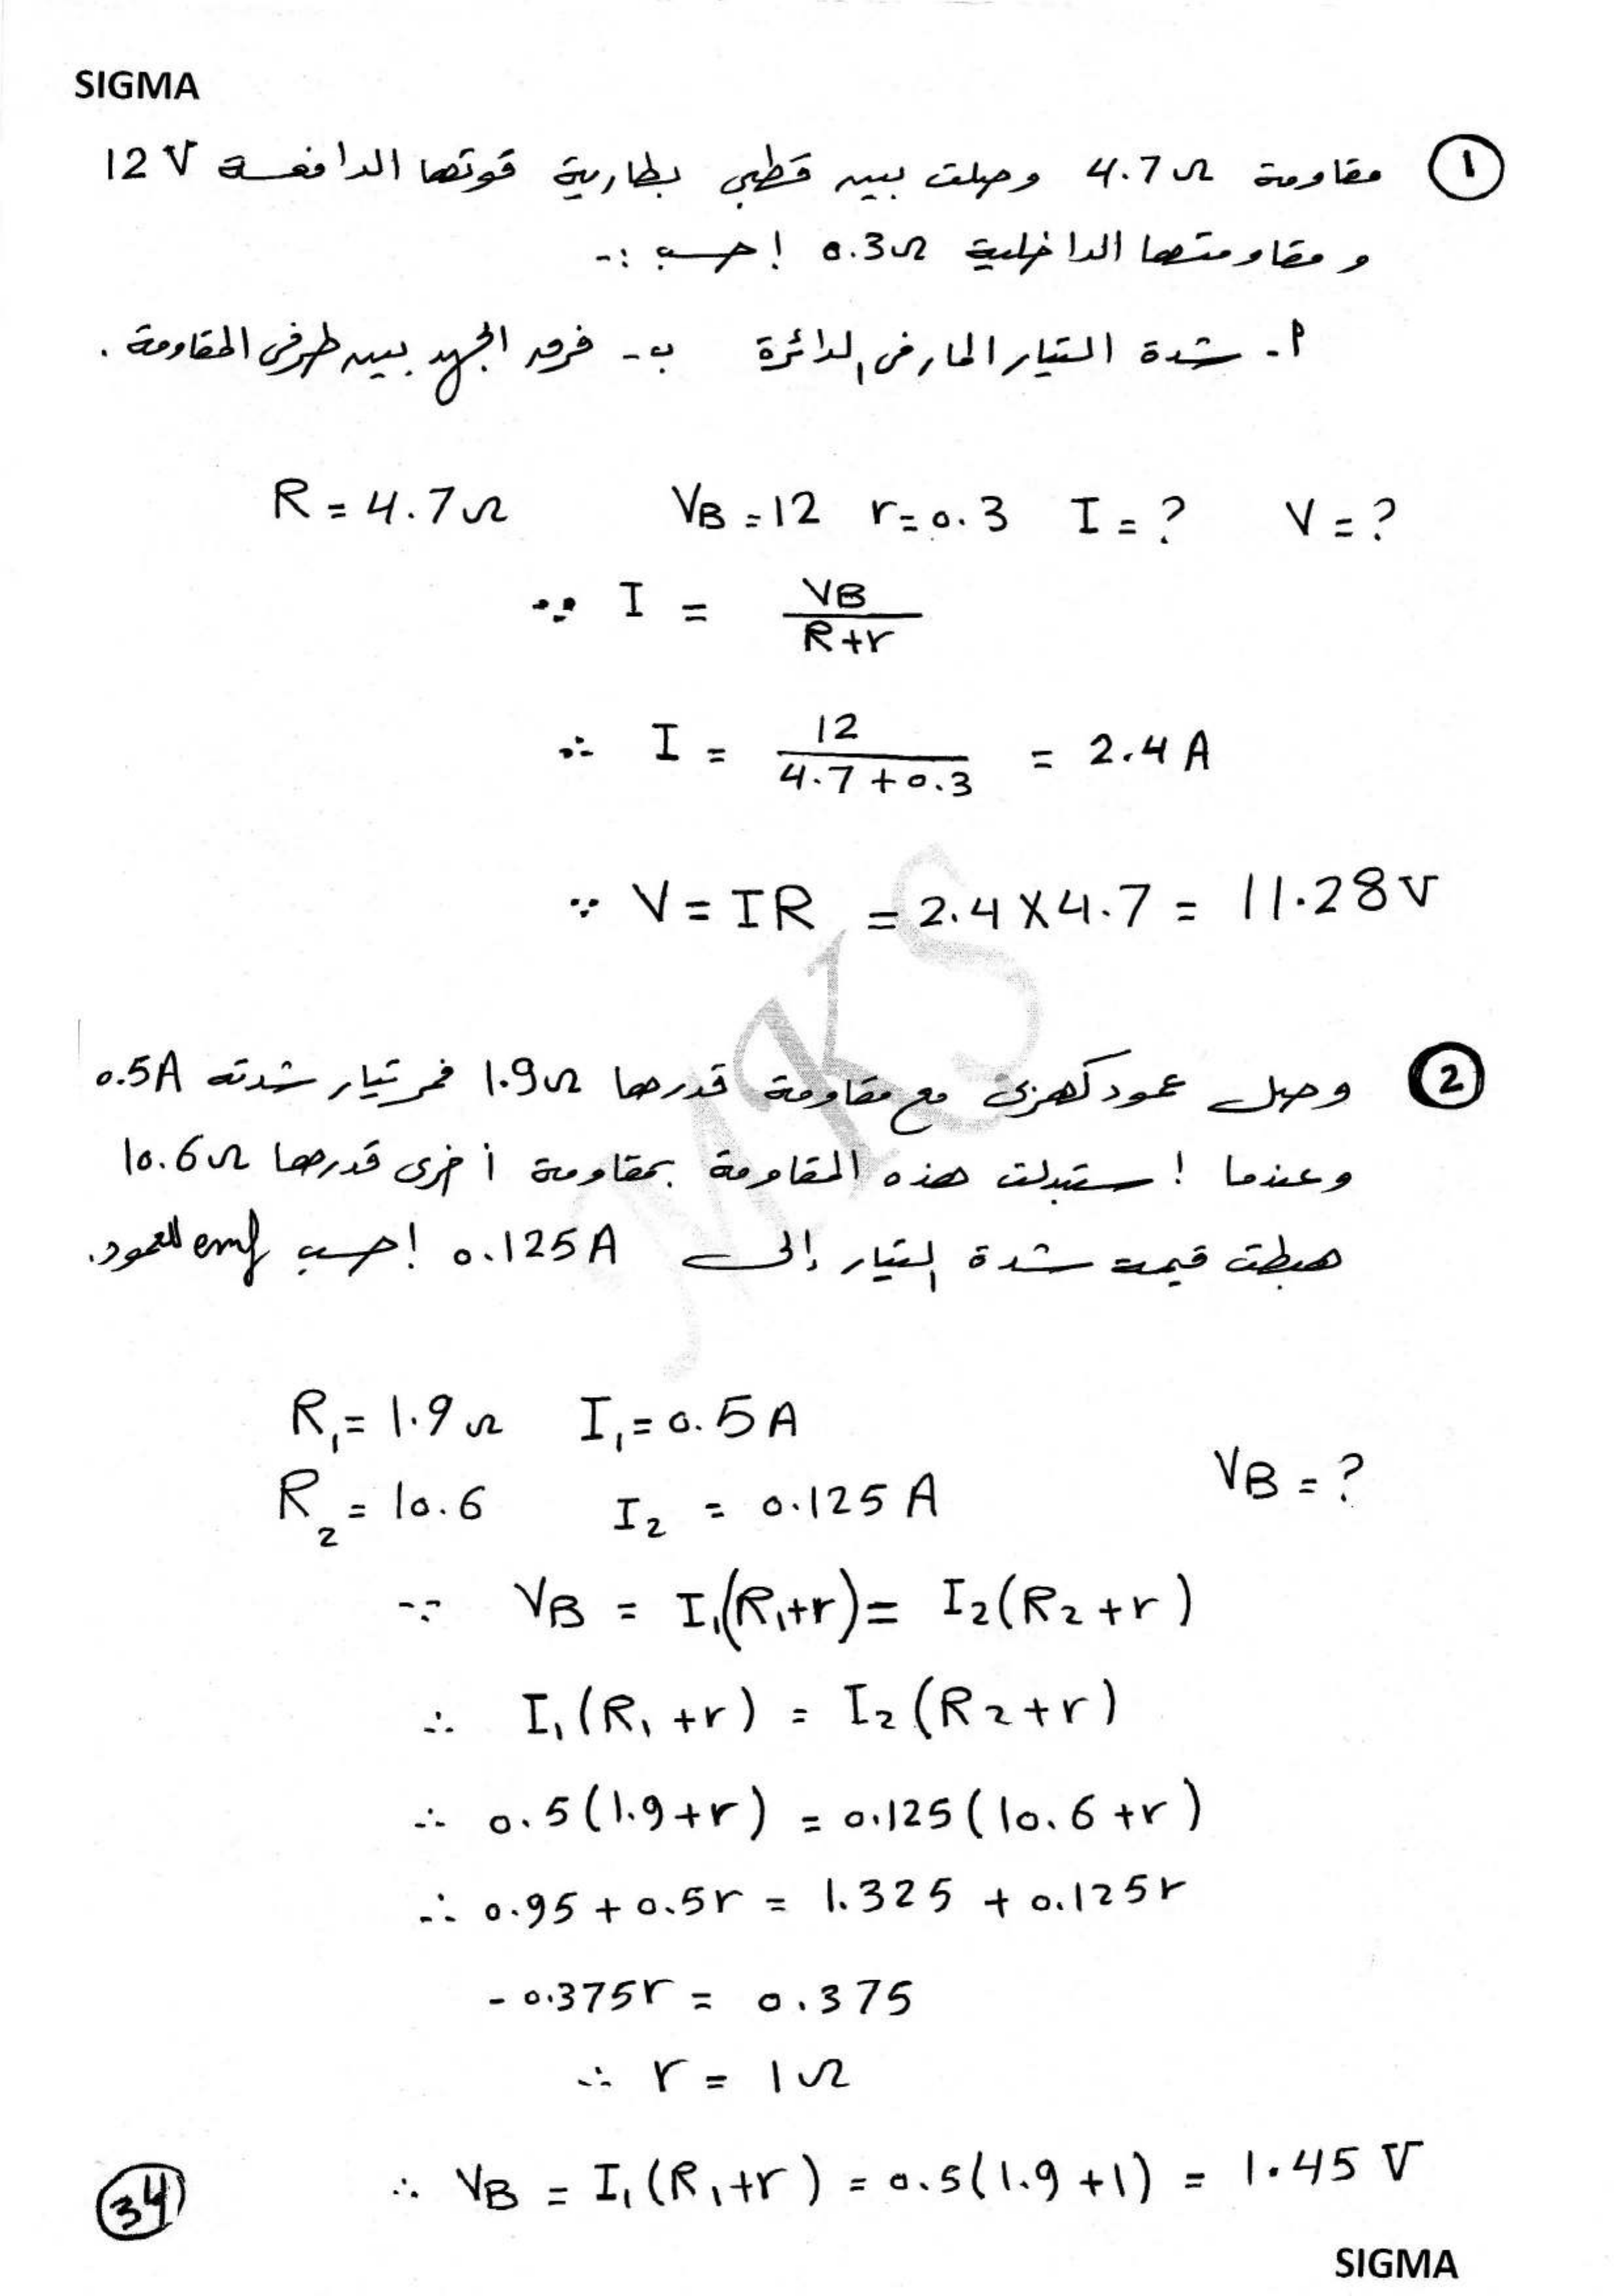 SIGMA
① مقاومة 4.7Ω وصلت بين قطبى بطارية قوتها الدافعة 12V
ومقاومتها الداخلية 0.3Ω إحسب :-
أ- شدة التيار المار فى الدائرة ب- فرق الجهد بين طرفى المقاومة .
R = 4.7Ω VB = 12 r = 0.3 I = ? V = ?
∵ I = VB / R+r
∴ I = 12 / 4.7+0.3 = 2.4 A
∵ V = IR = 2.4 X 4.7 = 11.28 V
MKS
② وصل عمود كهربى مع مقاومة قدرها 1.9Ω فمر تيار شدته 0.5A
وعندما إستبدلت هذه المقاومة بمقاومة أخرى قدرها 10.6Ω
هبطت قيمة شدة التيار إلى 0.125A إحسب emf للعمود.
R₁ = 1.9Ω I₁ = 0.5 A
VB = ?
R₂ = 10.6 I₂ = 0.125 A
∵ VB = I₁(R₁+r) = I₂(R₂+r)
∴ I₁(R₁+r) = I₂(R₂+r)
∴ 0.5(1.9+r) = 0.125(10.6+r)
∴ 0.95 + 0.5r = 1.325 + 0.125r
- 0.375r = 0.375
∴ r = 1Ω
∴ VB = I₁(R₁+r) = 0.5(1.9+1) = 1.45 V
34
SIGMA